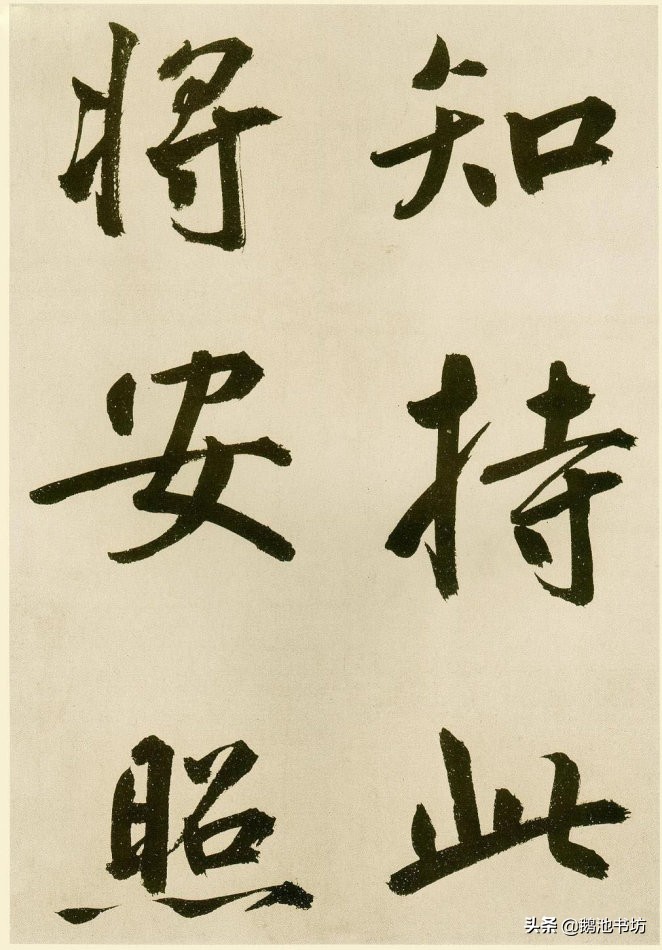 知持此
将安照
头条 @鹅池书坊